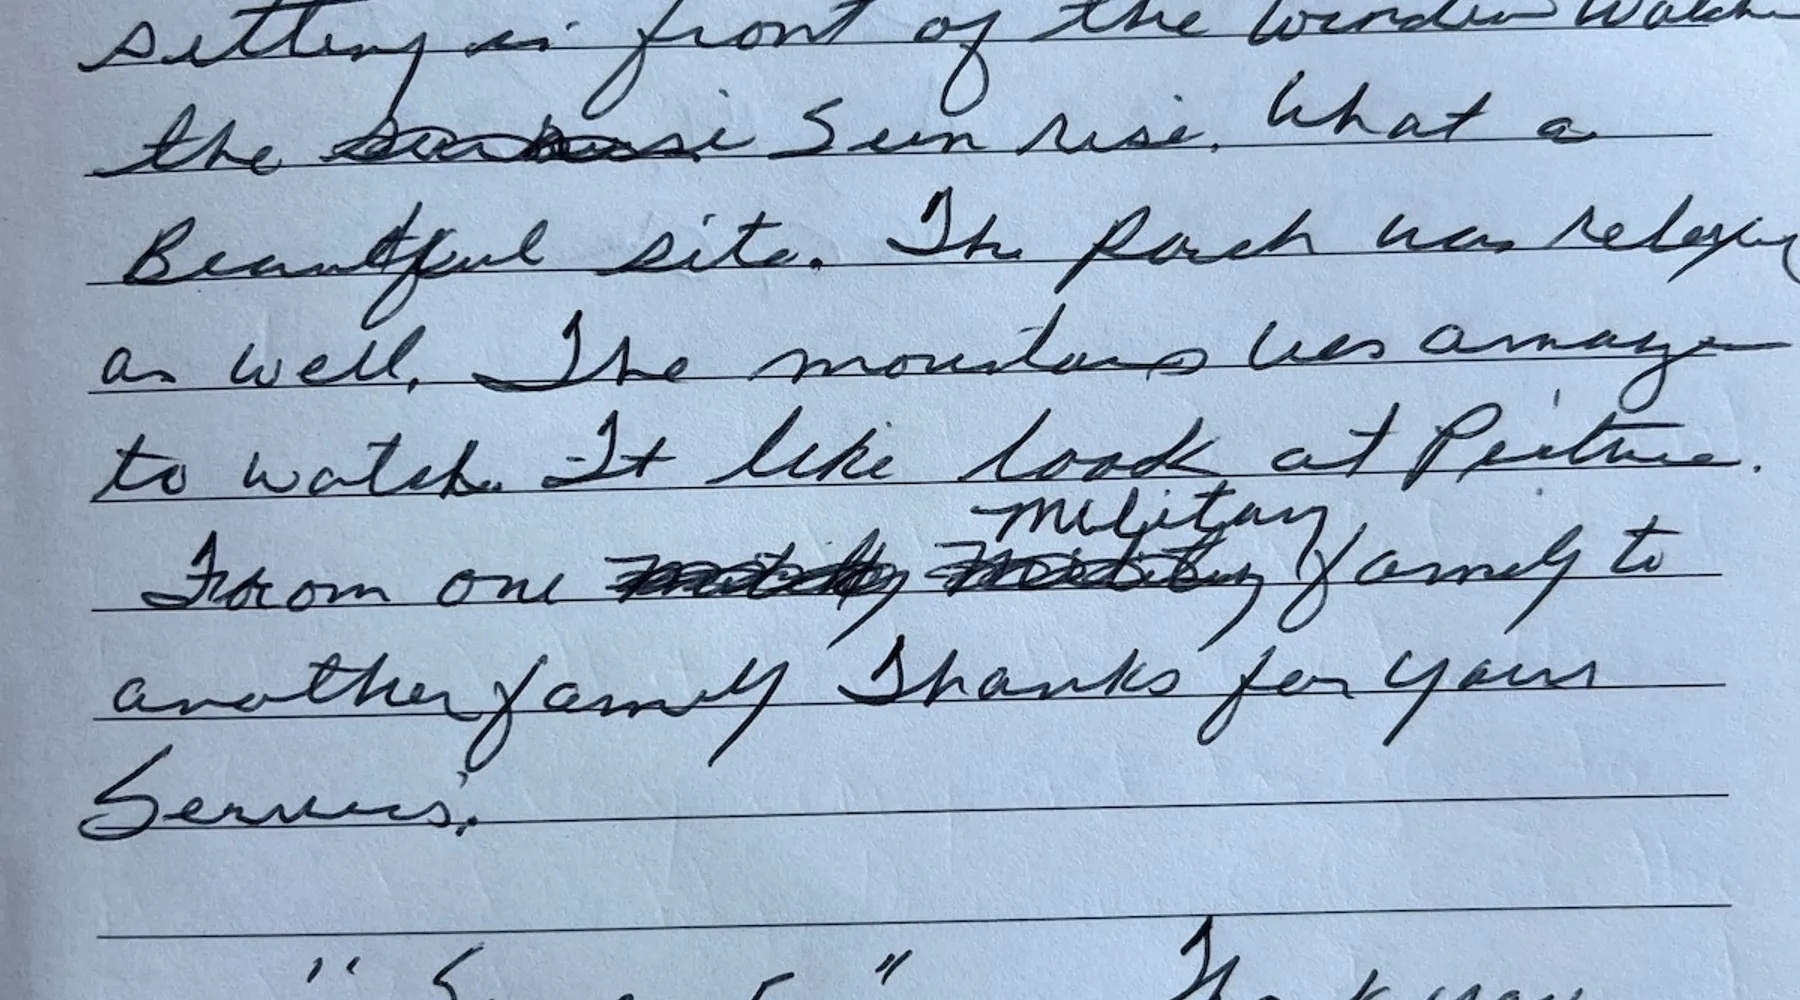 setting in front of the window watchi
the Sun rise. What a
Beautful site. The Porch was relaxing
as well. The mountans was amazin
to watch. It like look at Picture.
From one military family to
another family Thanks for yours
Services.
" " Thank you